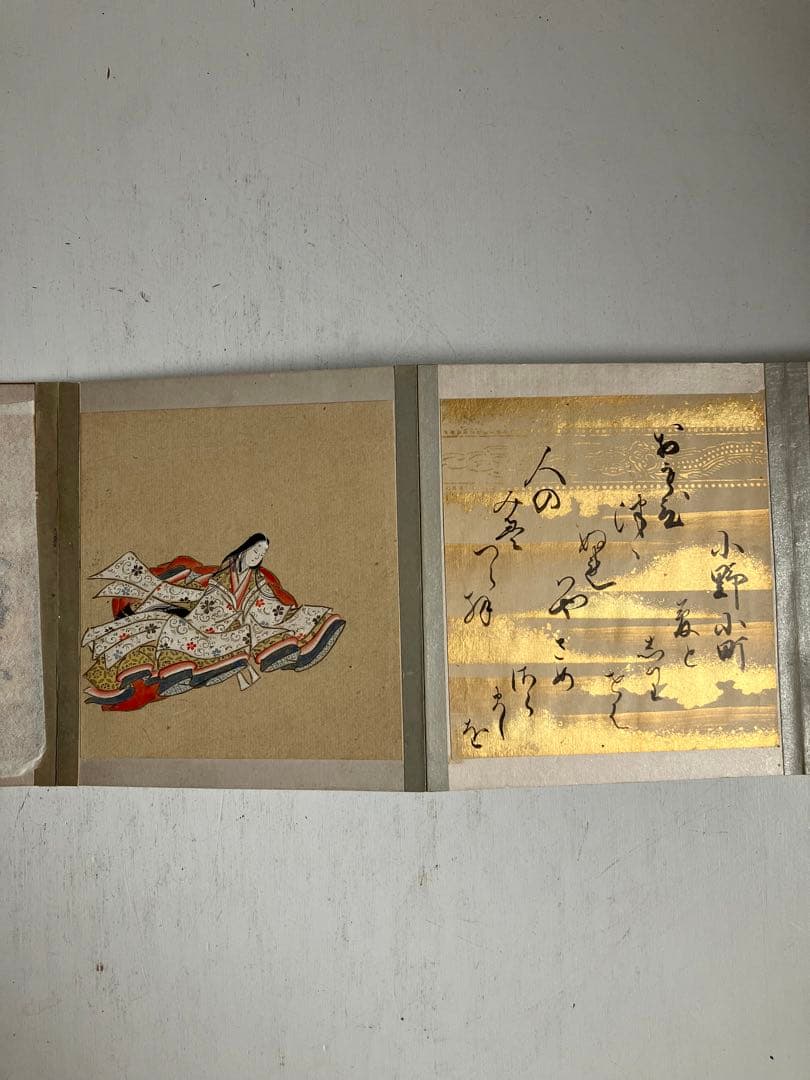 小野小町
おもひ
津ゝ
ぬれ
はや
人の
みえ
つらむ
夢と
志り
せは
さめ
さら
まし
を